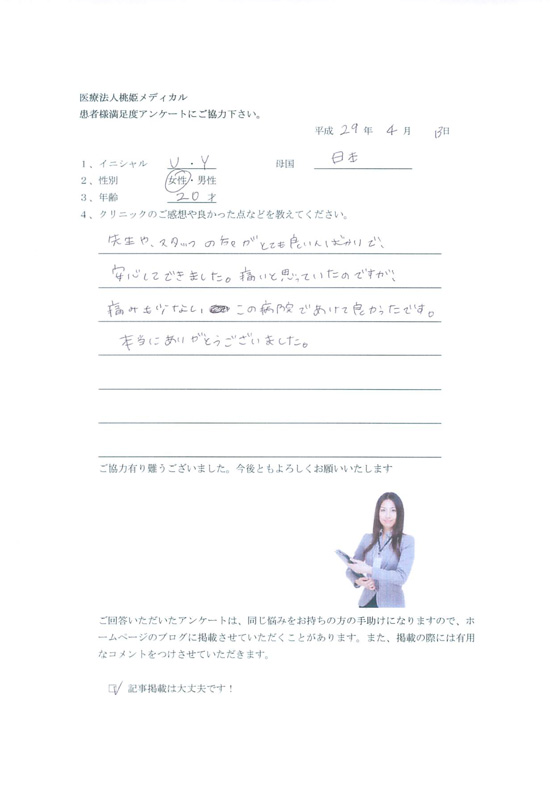 医療法人桃姫メディカル
患者様満足度アンケートにご協力下さい。
平成 29 年 4 月 13日
1、イニシャル U・Y 母国 日本
2、性別 女性・男性
3、年齢 20 才
4、クリニックのご感想や良かった点などを教えてください。
先生や、スタッフの方々がとても良い人ばかりで、
安心してできました。痛いと思っていたのですが、
痛みも少なしい この病院であけて良かったです。
本当にありがとうございました。
ご協力有り難うございました。今後ともよろしくお願いいたします
ご回答いただいたアンケートは、同じ悩みをお持ちの方の手助けになりますので、ホ
ームページのブログに掲載させていただくことがあります。また、掲載の際には有用
なコメントをつけさせていただきます。
☑ 記事掲載は大丈夫です！